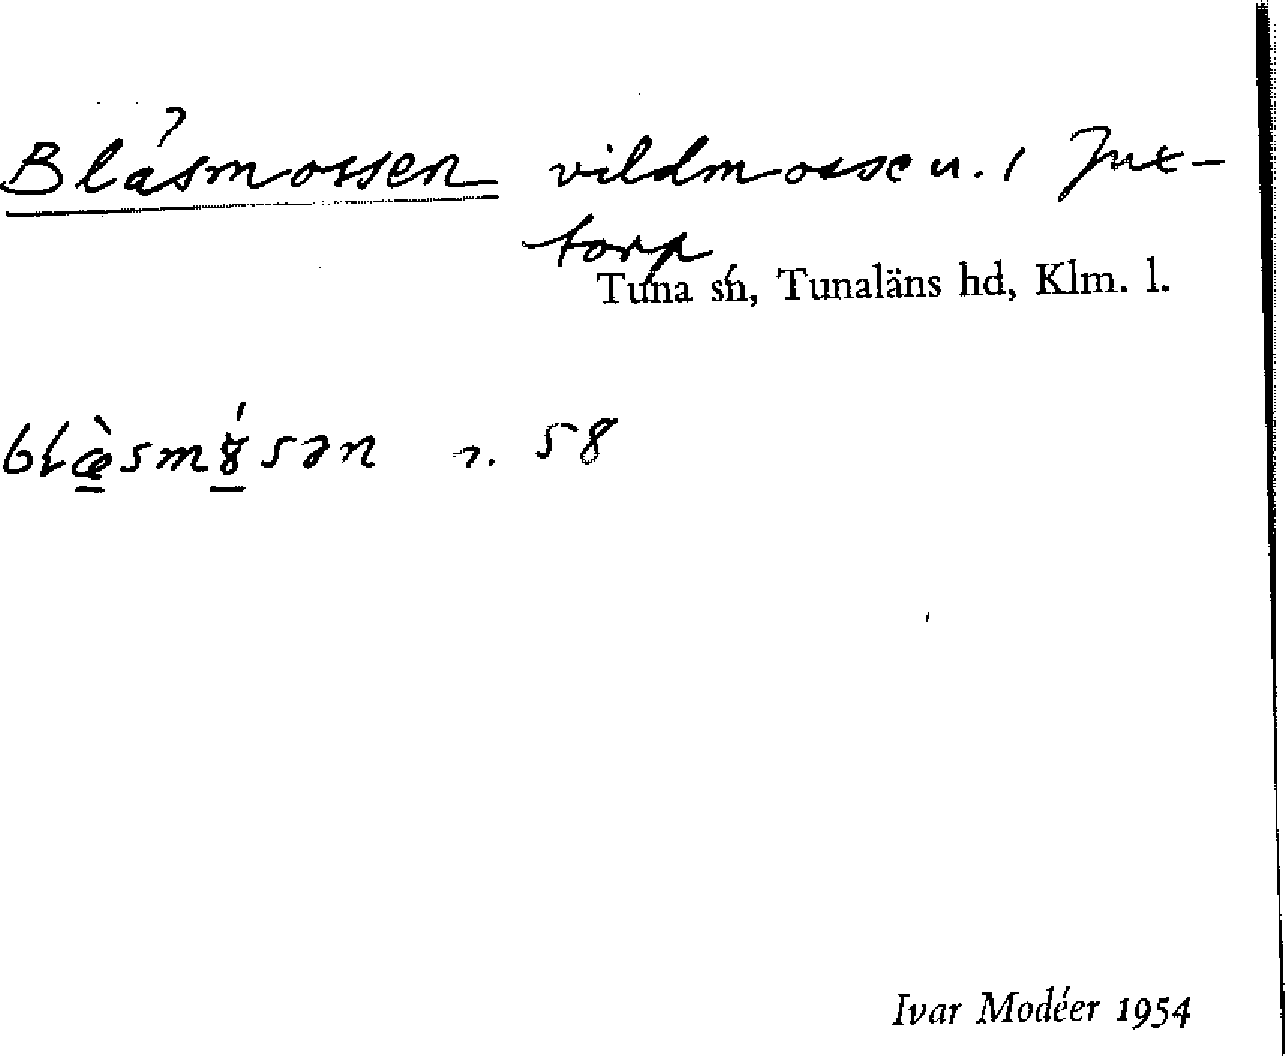 Blåsmossen vildmosse u. 1 Jux-
torp
Tuna sn, Tunaläns hd, Klm. l.
58
Ivar Modéer 1954